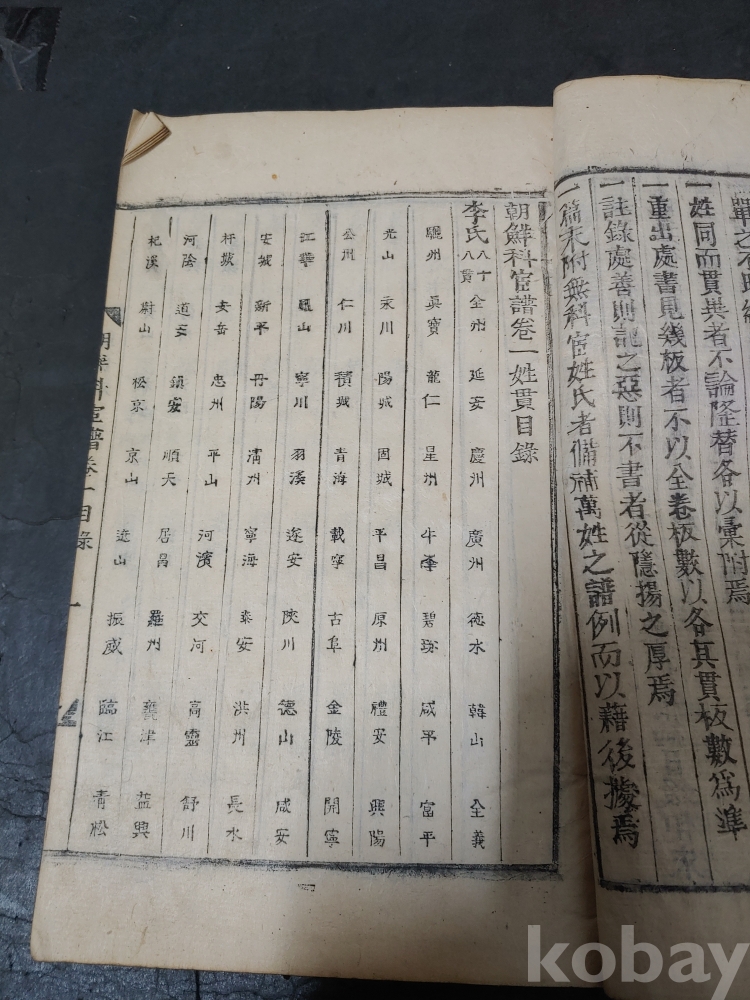 一姓同而貫異者不論隆替各以彙附焉
一重出處書見幾板者不以全卷板數以各其貫板數為準
一註錄處善則記之惡則不書者從隱揚之厚焉
一篇末附無科宦姓氏者備補萬姓之譜例而以藉後據焉
朝鮮科宦譜卷一姓貫目錄
李氏八十八貫 全州 延安 慶州 廣州 德水 韓山 全義
驪州 眞寶 龍仁 星州 牛峯 碧珍 咸平 富平
光山 永川 陽城 固城 平昌 原州 禮安 興陽
公州 仁川 積城 青海 載寧 古阜 金陵 開寧
江華 鳳山 寧川 羽溪 遂安 陜川 德山 咸安
安城 新平 丹陽 清州 寧海 泰安 洪州 長水
杆城 安岳 忠州 平山 河濱 交河 高靈 舒川
河陰 道安 鎭安 順天 居昌 羅州 甕津 益興
杞溪 蔚山 松京 京山 山 振威 臨江 青松
朝鮮科宦譜卷一目錄 一
kobay